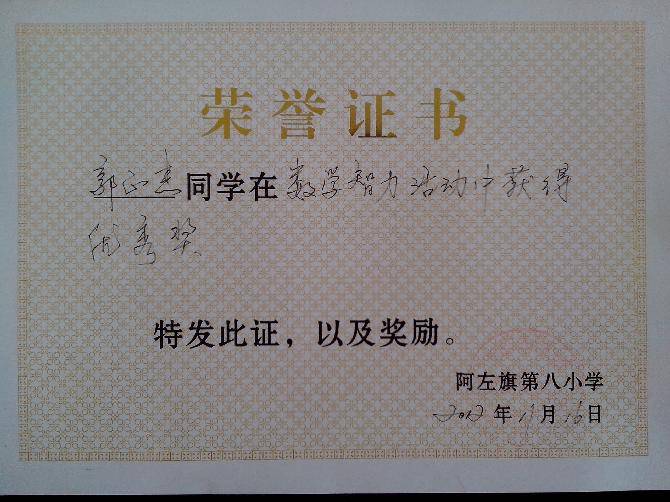 荣誉证书
郭正吉同学在数学智力活动中获得
优秀奖
特发此证，以及奖励。
阿左旗第八小学
2012年 月16日